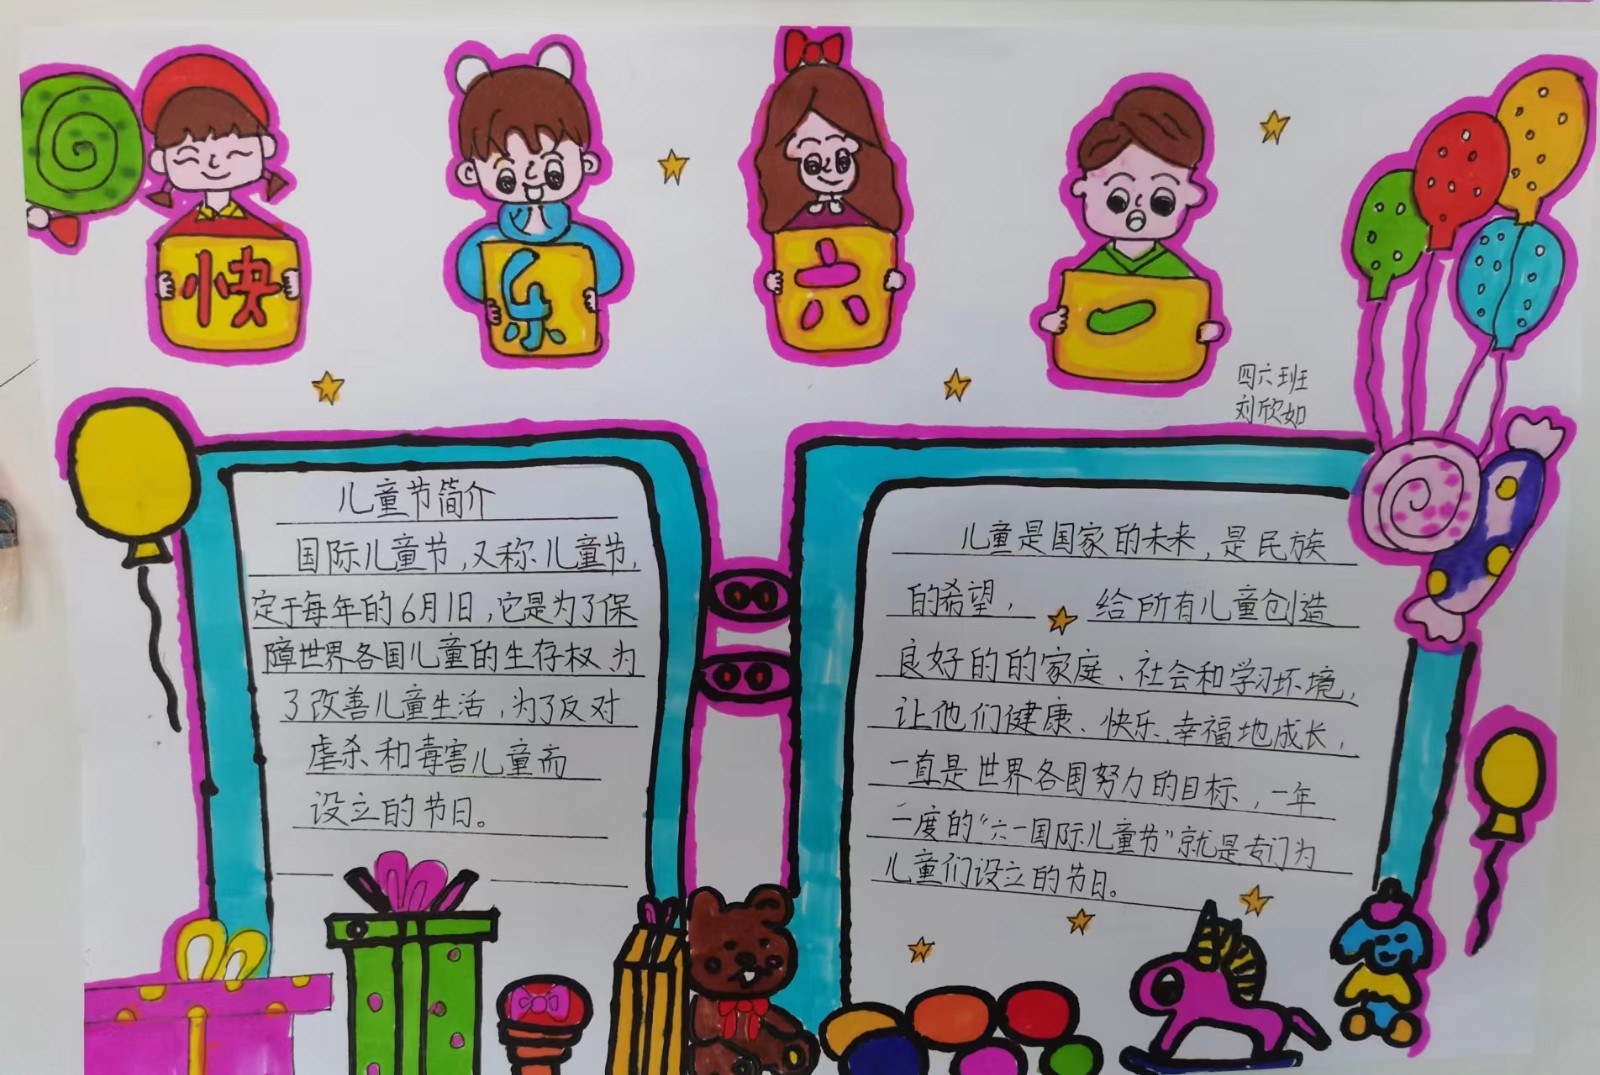 快乐六一
四六班
刘欣如
儿童节简介
国际儿童节,又称儿童节,
定于每年的6月1日,它是为了保
障世界各国儿童的生存权为
了改善儿童生活,为了反对
虐杀和毒害儿童而
设立的节日。
儿童是国家的未来,是民族
的希望, 给所有儿童创造
良好的的家庭、社会和学习环境,
让他们健康、快乐、幸福地成长,
一直是世界各国努力的目标,一年
一度的“六一国际儿童节”就是专门为
儿童们设立的节日。